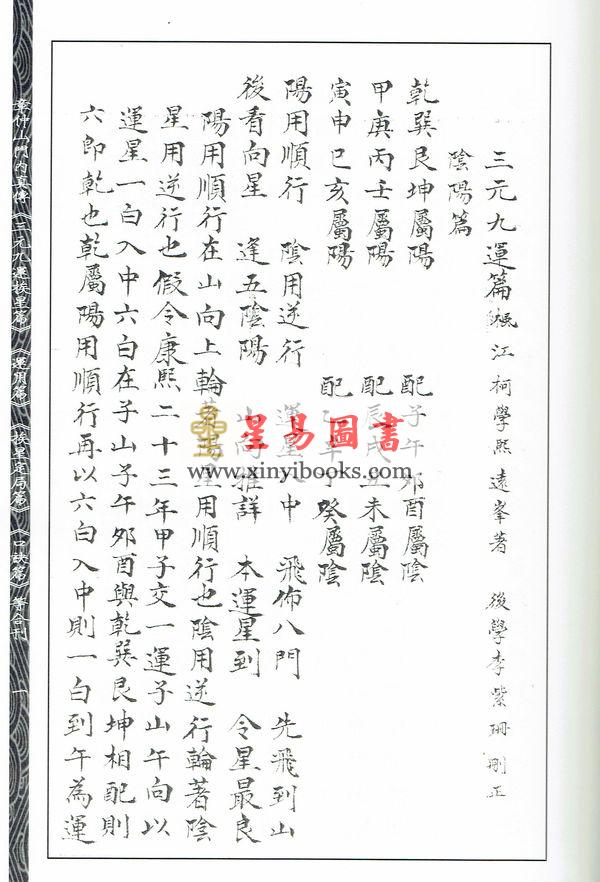 三元九運篇 江柯學熙遠峯著 後學李紫珊刪正
陰陽篇
乾巽艮坤屬陽 配子午卯酉屬陰
甲庚丙壬屬陽 配辰戌丑未屬陰
寅申巳亥屬陽 配乙辛丁癸屬陰
陽用順行 陰用逆行 運星入中 飛佈八門 先飛到山
後看向星 逢五陰陽 山向推詳 本運星到 令星最良
陽用順行在山向上輪著陽星用順行也陰用逆行輪著陰
星用逆行也假令康熙二十三年甲子交一運子山午向以
運星一白入中六白在子山子午卯酉與乾巽艮坤相配則
六即乾也乾屬陽用順行再以六白入中則一白到午為運
章仲山門內真傳《三元九運挨星篇》《運用篇》《挨星定局篇》《口訣篇》等合刊 一
星易圖書
www.xinyibooks.com